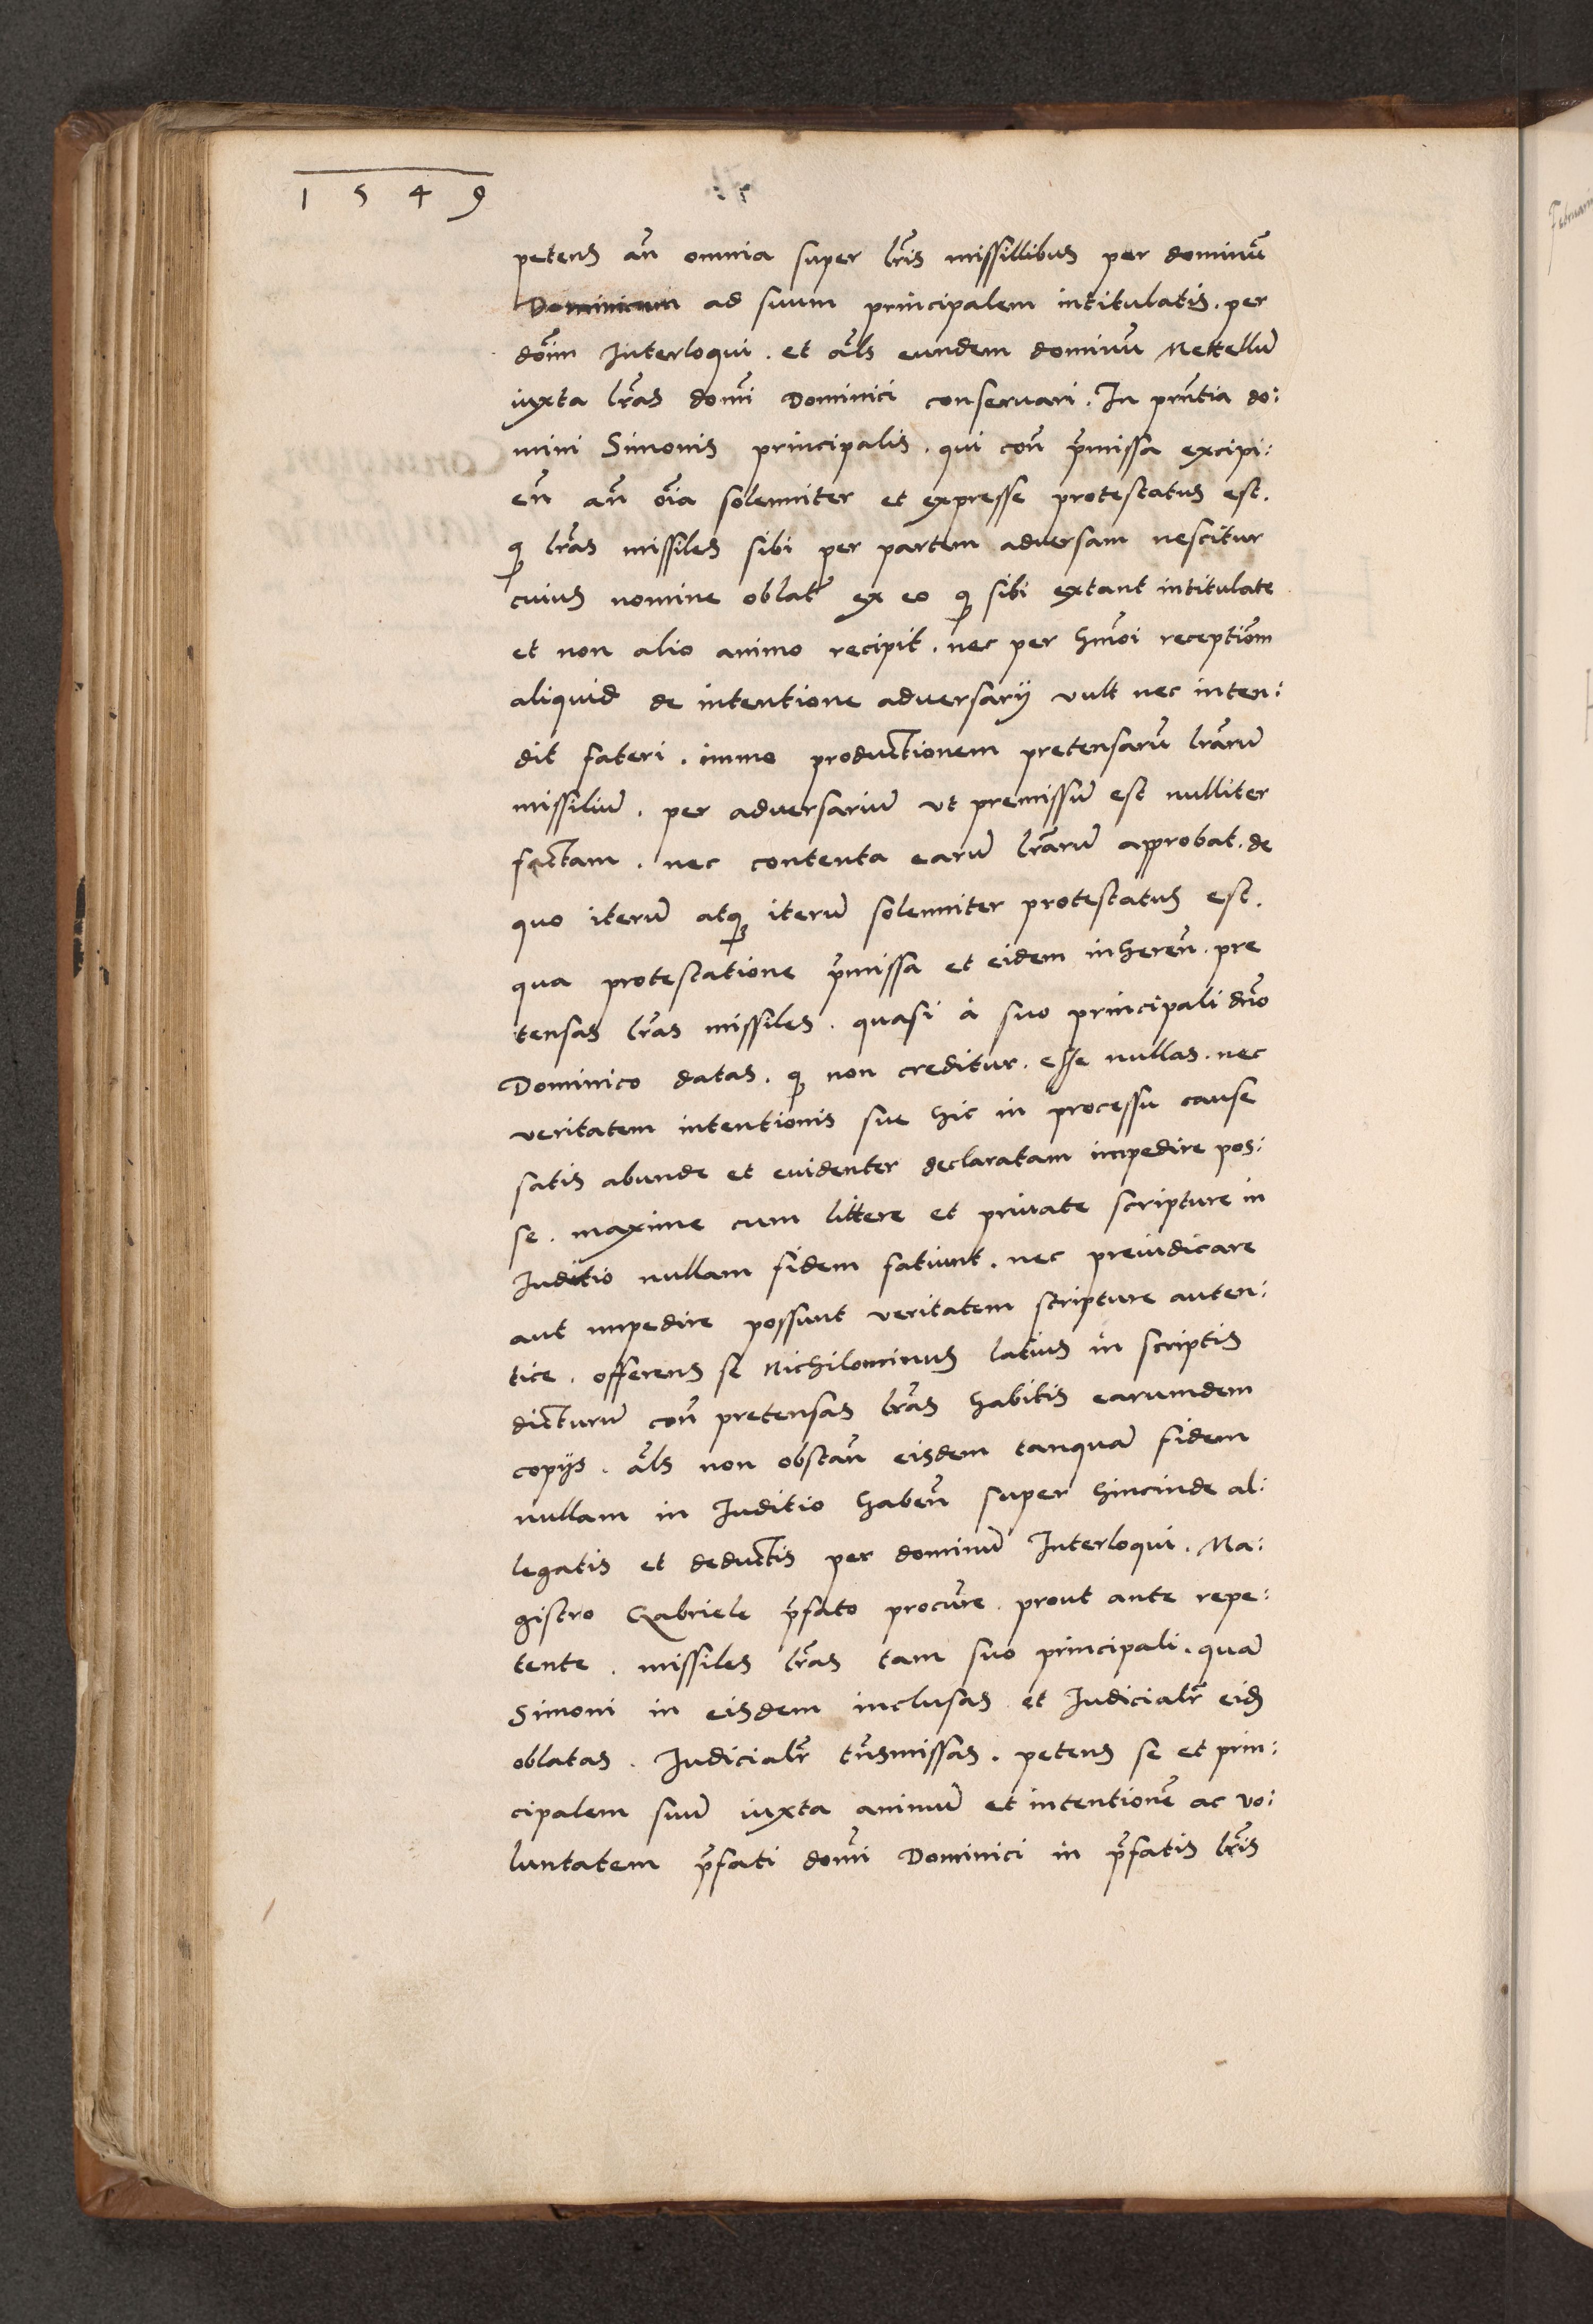 1 5 4 9
petens añ omnia super lr̃is missillibus per dominũ
Dominicum ad suum principalem intitulatis. per
dõim Interloqui. et al̃s eundem dominũ Mettellũ
iuxta lr̃as domñi Dominici conseruari. In prñtia do:
mini Simonis principalis. qui coñ p̃missa excipi:
eñ añ oĩa solenniter et expresse protestatus est.
ꝙ lr̃as missiles sibi per partem aduersam nescitur
cuius nomine oblat̃ ex eo ꝙ sibi extant intitulate
et non alio animo recipit. nec per hm̃oi receptiõm
aliquid de intentione aduersarij vult nec inten:
dit fateri. immo productionem pretensarũ lr̃arũ
missiliũ. per aduersariũ vt premissũ est nulliter
factam. nec contenta earũ lr̃arũ approbat. de
quo iterũ atqꝫ iterũ solenniter protestatus est.
qua protestatione p̃missa et eidem inhereñ. pre
tensas lr̃as missiles. quasi à suo principali dñio
Dominico datas. ꝙ non creditur. esse nullas. nec
veritatem intentionis sue hic in processu cause
satis abunde et euidenter declaratam impedire pos:
se. maxime cum littere et priuate scripture in
Iuditio nullam fidem fatiunt. nec preiudicare
aut impedire possunt veritatem scripture auten:
tice. offerens se Nichilominus latius in scriptis
dicturũ coñ pretensas lr̃as habitis earumdem
copijs. al̃s non obstañ eisdem tanquã fidem
nullam in Iuditio habeñ super hincinde al:
legatis et deductis per dominũ Interloqui. Ma:
gistro Gabriele p̃fato procur̃e. prout ante repe:
tente. missiles lr̃as tam suo principali. quã
Simoni in eisdem inclusas et Iudicialr̃ eid̃
oblatas. Iudicialr̃ tr̃nsmissas. petens se et prin:
cipalem suũ iuxta animũ et intentionẽ ac vo:
luntatem p̃fati domñi Dominici in p̃fatis lr̃is